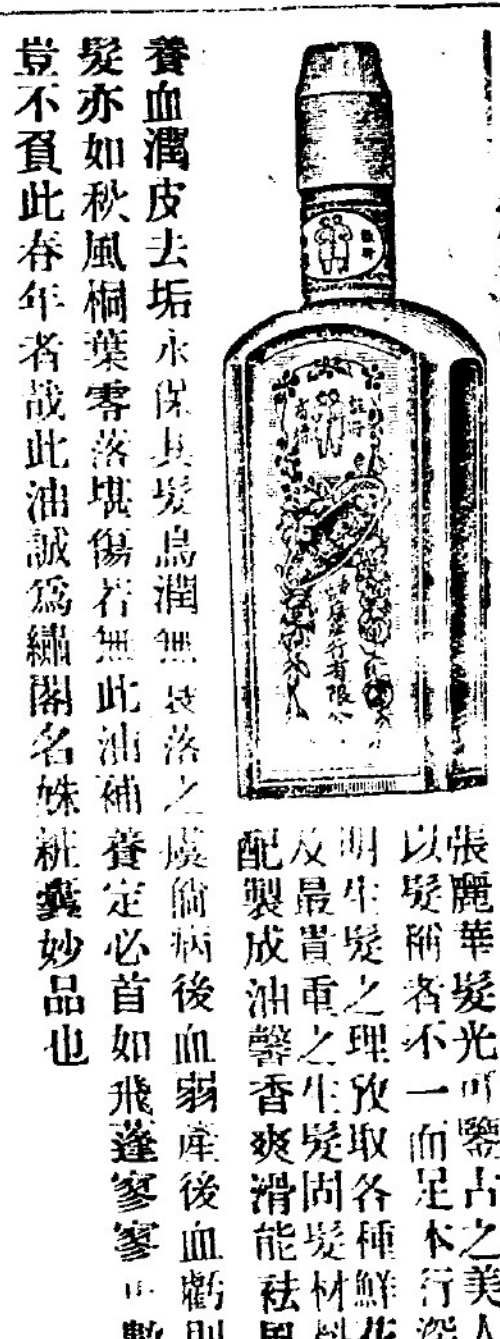 張麗華髮光可鑒古之美人
以髮稱者不一而足本行深
明生髮之理故取各種鮮花
及最貴重之生髮固髮材料
配製成油馨香爽滑能祛風
養血潤皮去垢永保其髮烏潤無衰落之虞倘病後血弱產後血虧則
髮亦如秋風桐葉零落堪傷若無此油補養定必首如飛蓬寥寥可數
豈不負此春年者哉此油誠為繡閣名姝粧奩妙品也
註冊
商標
行有限公